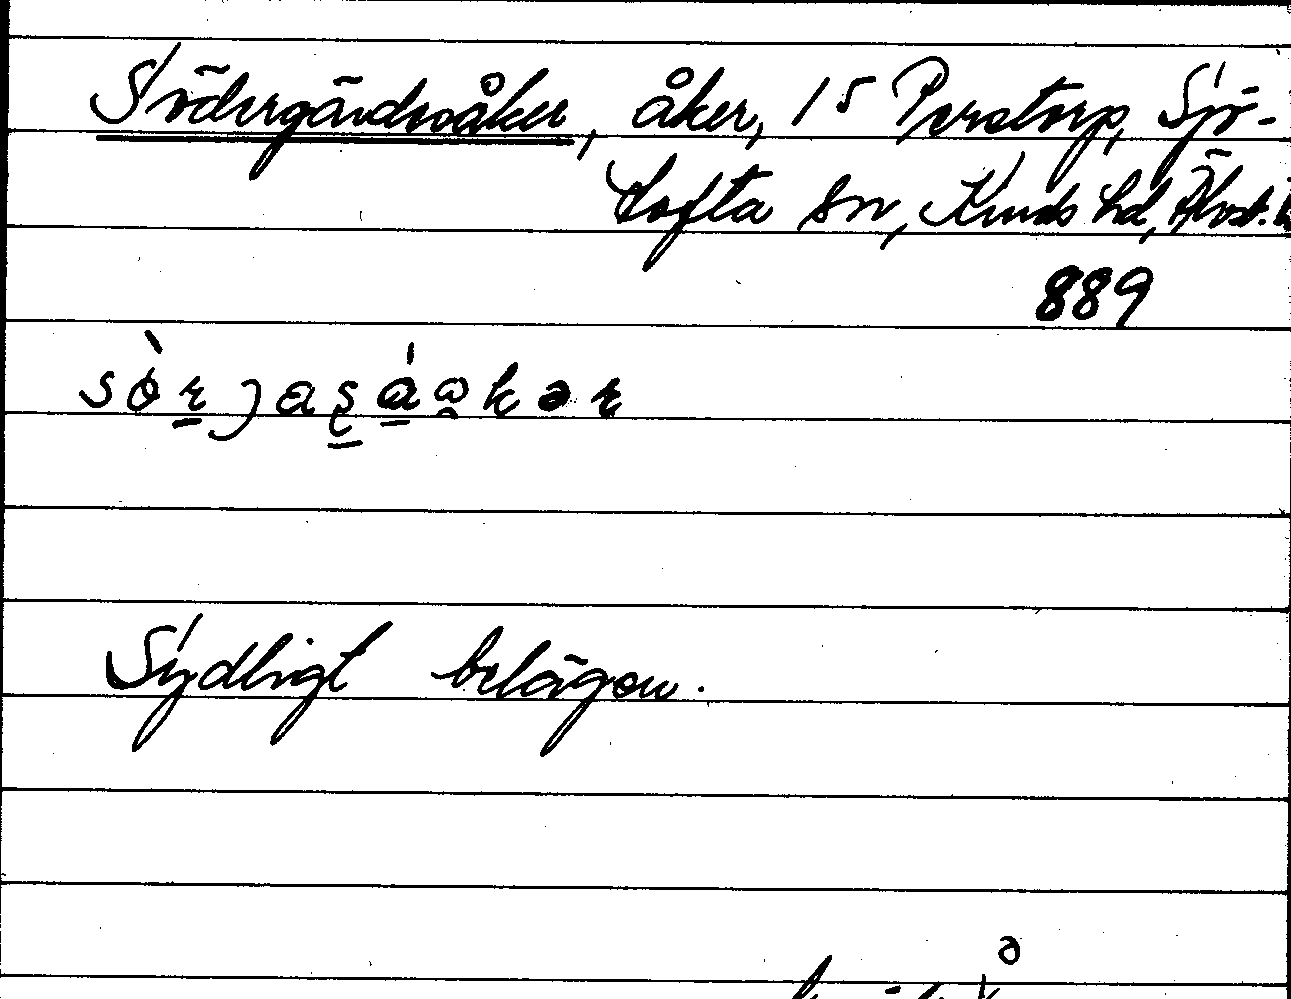 Södergärdsåker, åker, 15 Perstorp, Sjö-
tofta sn, Kinds hd, Älvsb. l
889
Sydligt belägen.